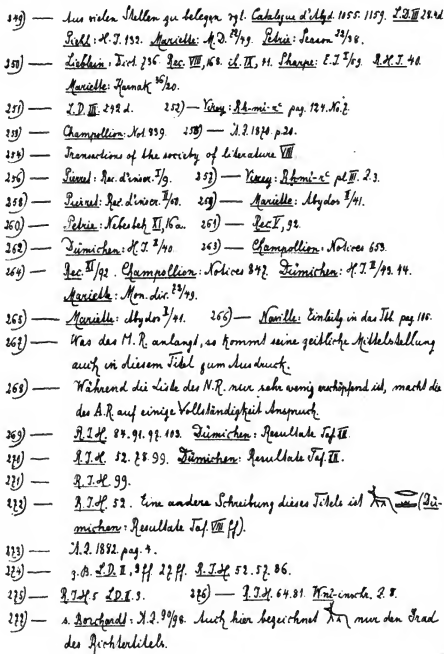 249) — Aus vielen Stellen zu belegen vgl. Catalogue d'Abyd. 1055. 1159. L.D. III 28.4d
Piehl: H.I. 132. Mariette: M.D. 22/49. Petrie: Season 22/38.
250) — Lieblein: Dict. 736. Rec. VIII, 168. ib. IX, 91. Sharpe: E.I. I/69. R.I.H. 40.
Mariette: Karnak 36/20.
251) — L.D. III. 242 d. 252) — Virey: Rh-mi-rc pag. 124. No. 7.
253) — Champollion: Not 839. 253) — A.Z. 1870. p. 20.
254) — Transactions of the society of literature VIII
256) — Pierret: Rec. d'inscr. I/9. 257) — Virey: Rhmi-rc pl III. Z. 3.
258) — Pierret: Rec. d'inscr. II/60. 259) — Mariette: Abydos II/41.
260) — Petrie: Nebesheh XI, 16a. 261) — Rec V, 92.
262) — Dümichen: H.I. II/40. 263) — Champollion: Notices 653.
264) — Rec. XI/92. Champollion: Notices 847. Dümichen: H.I. II/49. 44.
Mariette: Mon. div. 28/49.
265) — Mariette: Abydos I/41. 266) — Naville: Einleitg in das Tdb pag. 106.
267) — Was das M.R. anlangt, so kommt seine zeitliche Mittelstellung
auch in diesem Titel zum Ausdruck.
268) — Während die Liste des N.R. nur sehr wenig erschöpfend ist, macht die
des A.R. auf einige Vollständigkeit Anspruch.
269) — R.I.H. 84. 91. 97. 103. Dümichen: Resultate Taf.
270) — R.I.H. 52. 78. 99. Dümichen: Resultate Taf.
271) — R.I.H. 99.
272) — R.I.H. 52. Eine andere Schreibung dieses Titels ist (Dü-
michen: Resultate Taf. VIII ff).
273) — A.Z. 1882. pag. 4.
274) — z.B. L.D. II, 3 ff 27 ff. R.I.H. 52. 57. 86.
275) — R.I.H. 5 L.D. II. 3. 276) — R.I.H. 64. 81. Wni-inschr. Z. 8.
277) — s. Borchardt: A.Z. 90/98. Auch hier bezeichnet nur den Grad
des Richtertitels.